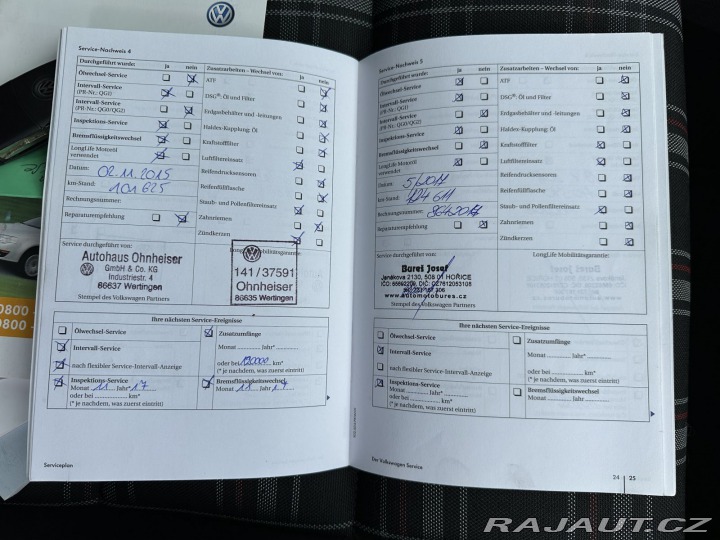 Service-Nachweis 4
Durchgeführt wurde: ja nein
Ölwechsel-Service
Intervall-Service
(PR-Nr.: QGI)
Intervall-Service
(PR-Nr.: QG0/QG2)
Inspektions-Service
Bremsflüssigkeitswechsel
LongLife Motoröl
verwendet
Datum: 02.11.2015
km-Stand: 101 625
Rechnungsnummer:
Reparaturempfehlung
Zusatzarbeiten – Wechsel von: ja nein
ATF
DSG®: Öl und Filter
Erdgasbehälter und -leitungen
Haldex-Kupplung: Öl
Kraftstofffilter
Luftfiltereinsatz
Reifendrucksensoren
Reifenfüllflasche
Staub- und Pollenfiltereinsatz
Zahnriemen
Zündkerzen
Service durchgeführt von:
LongLife Mobilitätsgarantie:
Autohaus Ohnheiser
GmbH & Co. KG
Industriestr. 4
86637 Wertingen
141/37591
Ohnheiser
86635 Wertingen
Stempel des Volkswagen Partners
Ihre nächsten Service-Ereignisse
Ölwechsel-Service
Intervall-Service
nach flexibler Service-Intervall-Anzeige
Inspektions-Service
Monat 11 Jahr* 17
oder bei km*
(* je nachdem, was zuerst eintritt)
Zusatzumfänge
Monat Jahr*
oder bei 120000 km*
(* je nachdem, was zuerst eintritt)
Bremsflüssigkeitswechsel
Monat 11 Jahr 17
Serviceplan
Service-Nachweis 5
Durchgeführt wurde: ja nein
Ölwechsel-Service
Intervall-Service
(PR-Nr.: QGI)
Intervall-Service
(PR-Nr.: QG0/QG2)
Inspektions-Service
Bremsflüssigkeitswechsel
LongLife Motoröl
verwendet
Datum:
km-Stand: 124 611
Rechnungsnummer:
Reparaturempfehlung
Zusatzarbeiten – Wechsel von: ja nein
ATF
DSG®: Öl und Filter
Erdgasbehälter und -leitungen
Haldex-Kupplung: Öl
Kraftstofffilter
Luftfiltereinsatz
Reifendrucksensoren
Reifenfüllflasche
Staub- und Pollenfiltereinsatz
Zahnriemen
Zündkerzen
Service durchgeführt von:
LongLife Mobilitätsgarantie:
Bareš Josef
Janákova 2130, 508 01 HOŘICE
www.automotobures.cz
Stempel des Volkswagen Partners
Ihre nächsten Service-Ereignisse
Ölwechsel-Service
Intervall-Service
nach flexibler Service-Intervall-Anzeige
Inspektions-Service
Monat Jahr*
oder bei km*
(* je nachdem, was zuerst eintritt)
Zusatzumfänge
Monat Jahr*
oder bei km*
(* je nachdem, was zuerst eintritt)
Bremsflüssigkeitswechsel
Monat Jahr*
Der Volkswagen Service
24 25
0800 –
0800 –
RAJAUT.CZ